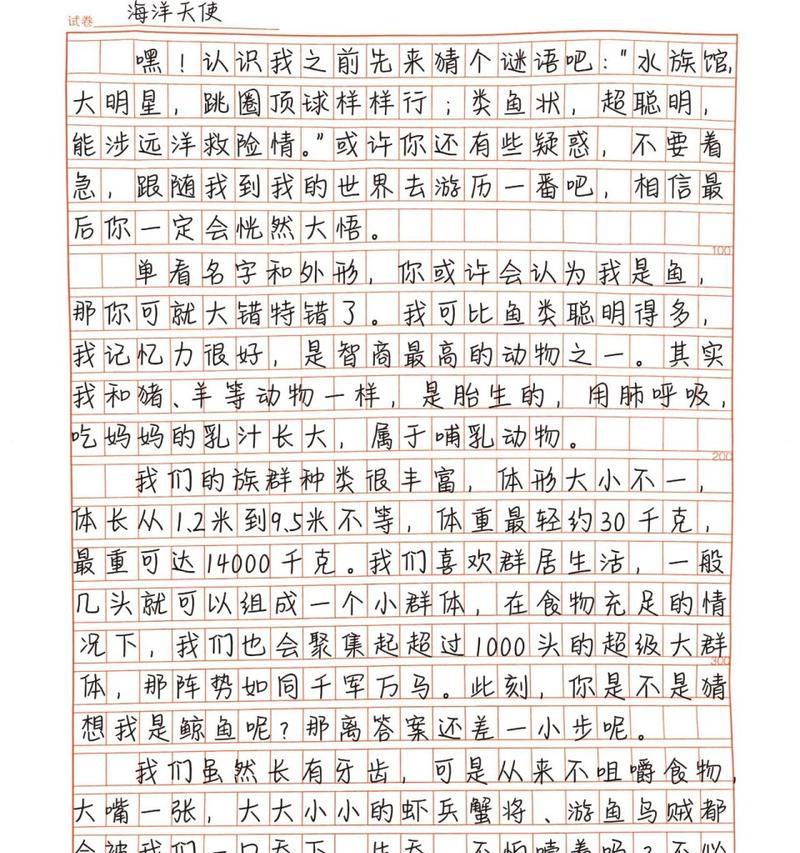 海洋天使
试卷
嘿！认识我之前先来猜个谜语吧："水族馆，
大明星，跳圈顶球样样行；类鱼状，超聪明，
能涉远洋救险情。"或许你还有些疑惑，不要着
急，跟随我到我的世界去游历一番吧，相信最
后你一定会恍然大悟。
100
单看名字和外形，你或许会认为我是鱼，
那你可就大错特错了。我可比鱼类聪明得多，
我记忆力很好，是智商最高的动物之一。其实
我和猪、羊等动物一样，是胎生的，用肺呼吸，
吃妈妈的乳汁长大，属于哺乳动物。
200
我们的族群种类很丰富，体形大小不一，
体长从1.2米到9.5米不等，体重最轻约30千克，
最重可达14000千克。我们喜欢群居生活，一般
几头就可以组成一个小群体，在食物充足的情
况下，我们也会聚集起超过1000头的超级大群
300
体，那阵势如同千军万马。此刻，你是不是猜
想我是鲸鱼呢？那离答案还差一小步呢。
我们虽然长有牙齿，可是从来不咀嚼食物，
大嘴一张，大大小小的虾兵蟹将、游鱼乌贼都
会被我们一口吞下。生吞，不怕噎着吗？不必